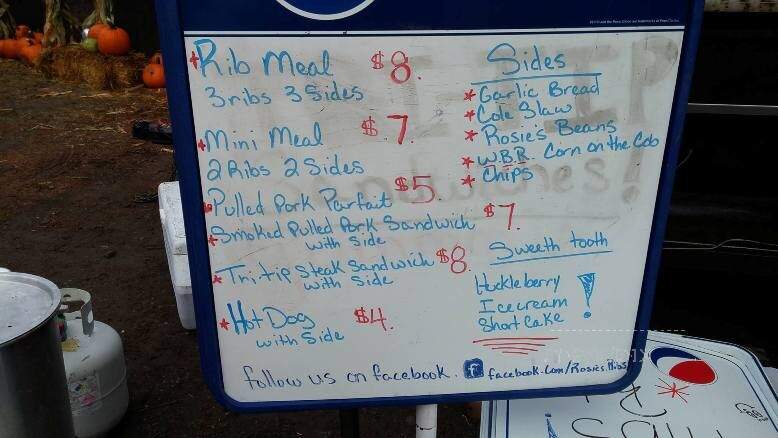 Rib Meal $8.
3 ribs 3 Sides
Mini Meal $7.
2 Ribs 2 Sides
Pulled Pork Parfait $5.
Smoked Pulled Pork Sandwich $7
with side
Tri tip Steak Sandwich $8.
with Side
Hot Dog $4.
with Side
Sides
Garlic Bread
Cole Slaw
Rosie's Beans
W.B.R. Corn on the Cob
Chips
Sweeth tooth
Huckleberry
Icecream
Short Cake !
follow us on facebook. f facebook.com/RosiesRibs